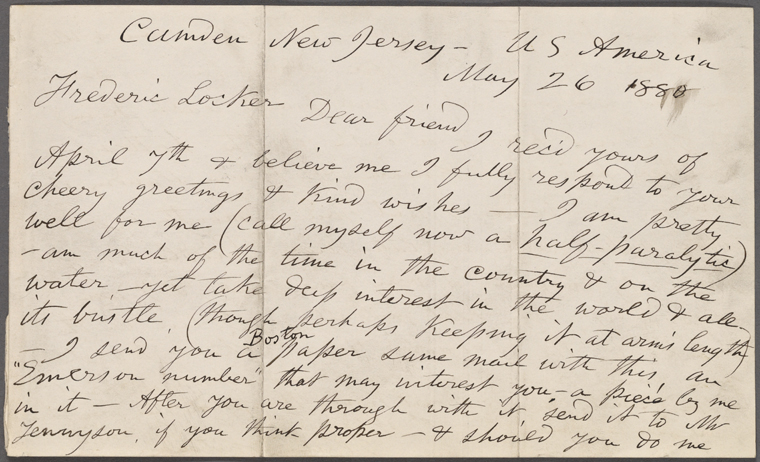 Camden New Jersey - U S America
May 26 1880
Frederic Locker Dear friend
I rec'd yours of
April 7th & believe me I fully respond to your
cheery greetings & kind wishes — I am pretty
well for me (call myself now a half-paralytic)
- am much of the time in the country & on the
water - yet take deep interest in the world & all
its bustle (though perhaps keeping it at arms length)
— I send you a Boston paper same mail with this, an
"Emerson number" that may interest you - a piece by me
in it — After you are through with it, send it to Mr
Tennyson, if you think proper — & should you do me